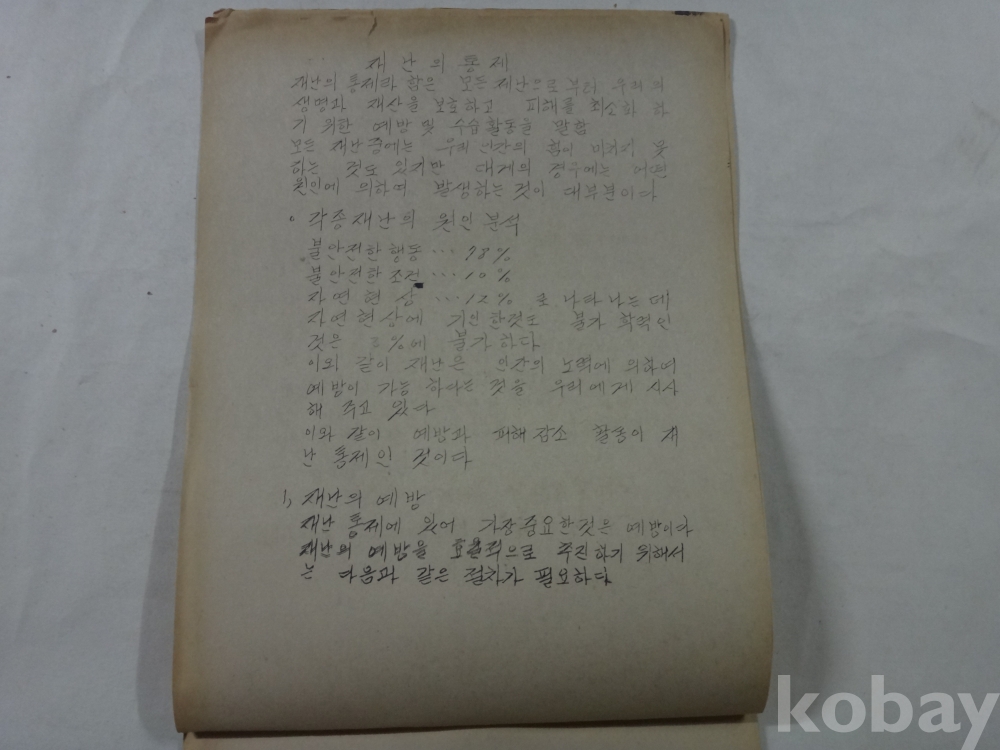 재난의 통제
재난의 통제라 함은 모든 재난으로 부터 우리의
생명과 재산을 보호하고 피해를 최소화 하
기 위한 예방 및 수습활동을 말함
모든 재난중에는 우리 인간의 힘이 미치지 못
하는 것도 있지만 대게의 경우에는 어떤
원인에 의하여 발생하는 것이 대부분이다
○ 각종재난의 원인 분석
불안전한 행동 … 78%
불안전한 조건 … 10%
자연 현상 … 12% 로 나타나는데
자연현상에 기인한것도 불가 학력인
것은 2%에 불가하다
이와 같이 재난은 인간의 노력에 의하여
예방이 가능 하다는 것을 우리에게 시사
해 주고 있다
이와 같이 예방과 피해감소 활동이 재
난 통제인 것이다
1, 재난의 예방
재난 통제에 있어 가장중요한것은 예방이다
재난의 예방을 효율적으로 추진하기 위해서
는 다음과 같은 절차가 필요하다
kobay